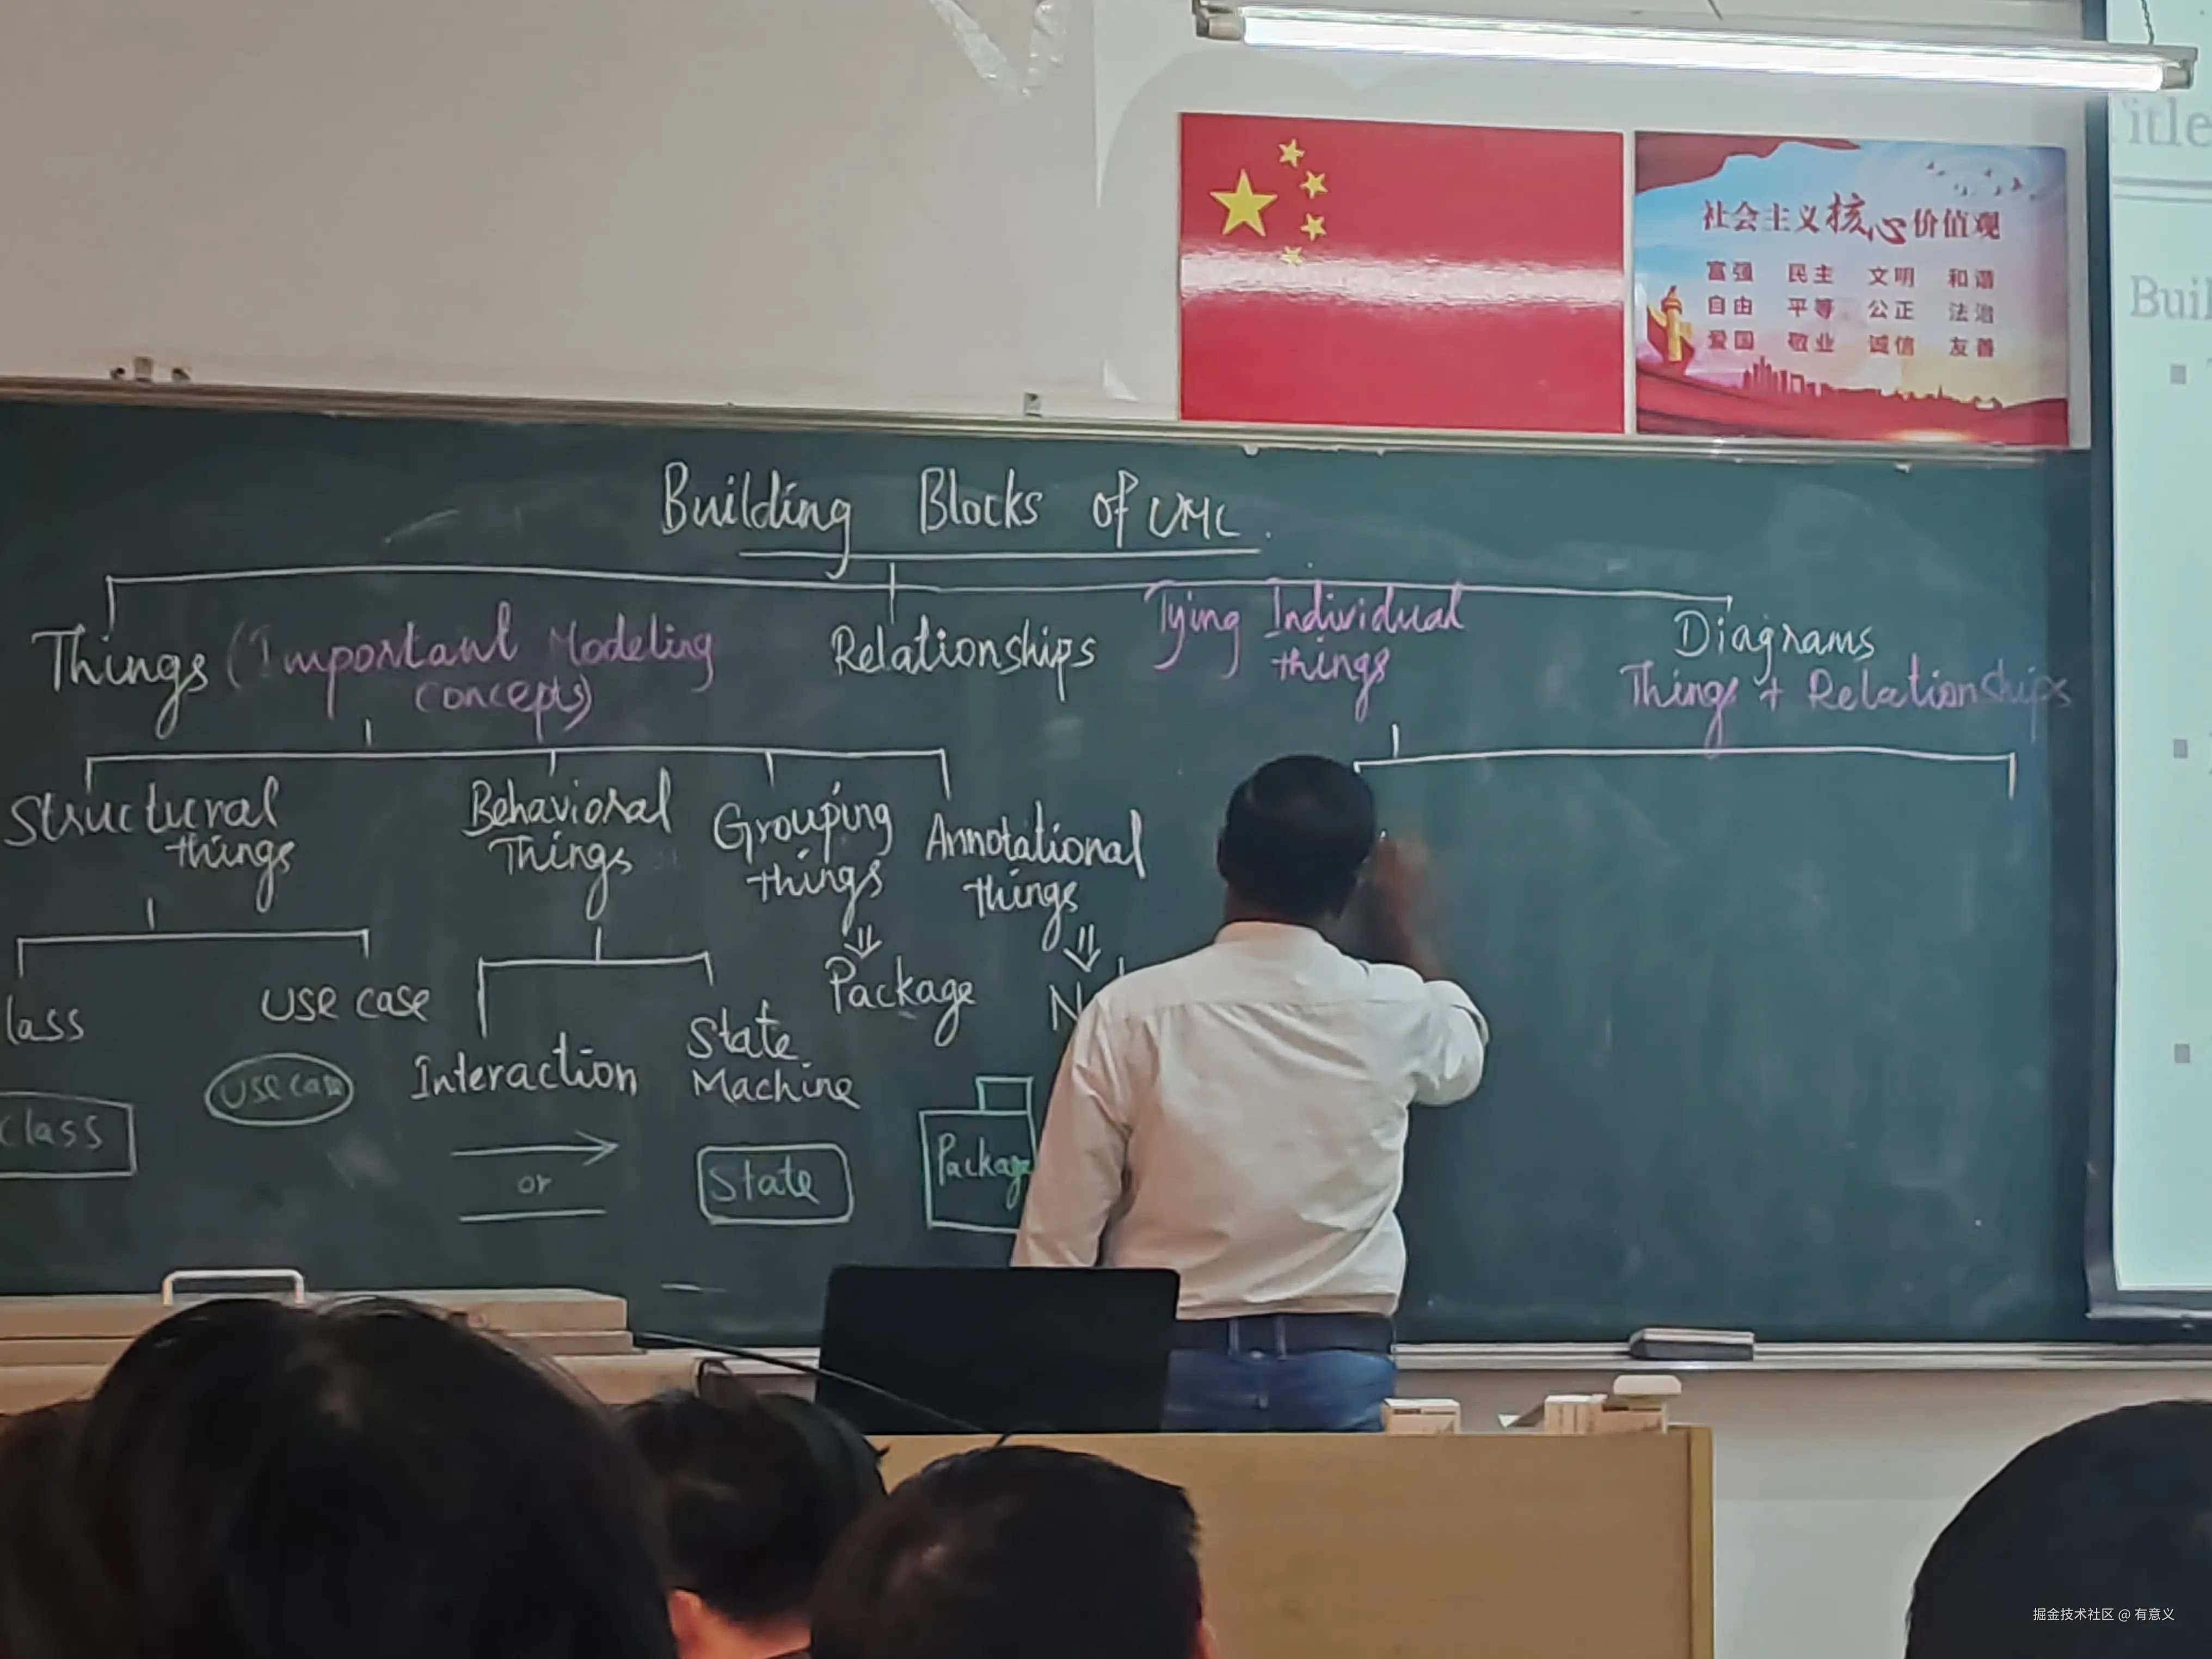 社会主义核心价值观
富强 民主 文明 和谐
自由 平等 公正 法治
爱国 敬业 诚信 友善
itle
Buil
Building Blocks of UML.
Things (Important Modeling
concepts)
Relationships
Tying Individual
things
Diagrams
Things + Relationships
Structural
things
Behavioral
Things
Grouping
things
Annotational
things
lass
Use case
Interaction
State
Machine
Package
N
Class
Use case
or
State
Package
掘金技术社区 @ 有意义